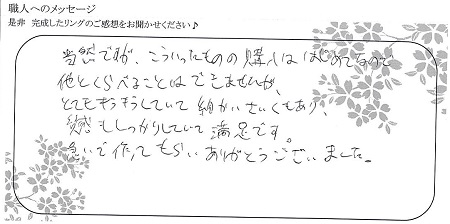 職人へのメッセージ
是非 完成したリングのご感想をお聞かせください♪
当然ですが、こういったものの購入ははじめてなので
他とくらべることはできませんが、
とてもキラキラしていて細かいさいくもあり、
質感もしっかりしていて満足です。
急いで作ってもらいありがとうございました。